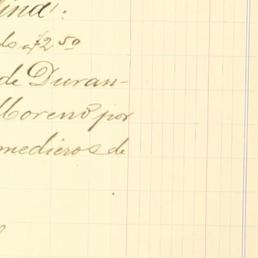 ina:
do a $2.50
de Duran-
Moreno por
medieros de